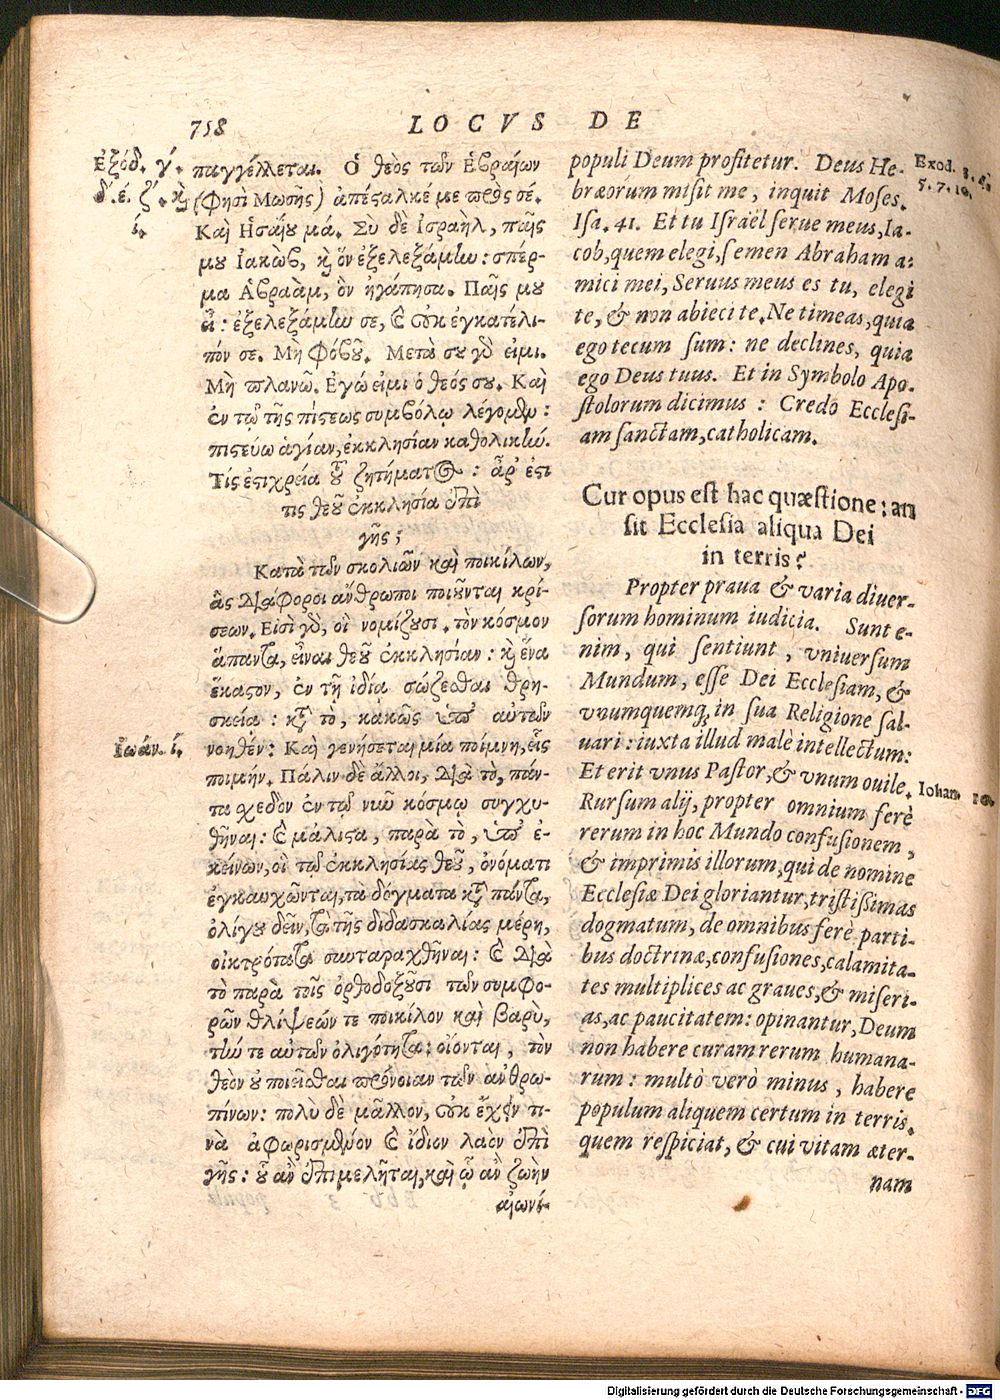 758
LOCVS DE
Ἐξόδ. γʹ.
δʹ. έ. ζʹ. κỳ
ίʹ.
παγγέλλεται. Ὁ θεὸς τῶν Ἑβραίων
(Φησὶ Μωσῆς) ἀπέσαλκέ με πρὸς σέ.
Καὶ Ἡσαΐου μά. Σὺ δὲ Ισραὴλ, παῖς
μου Ιακὼβ, καὶ ὅν ἐξελεξάμην: σπέρ-
μα Ἀβραὰμ, ὃν ἠγάπησα. Παῖς μου
εἶ: ἐξελεξάμην σε, καὶ οὐκ ἐγκατέλι-
πόν σε. Μὴ φόβου. Μετὰ σου γὰρ εἰμι.
Μὴ πλανῶ. Ἐγώ εἰμι ὁ θεός σου. Καὶ
ἐν τῷ τῆς πίστεως συμβόλῳ λέγομεν:
πιστεύω ἁγίαν, ἐκκλησίαν καθολικήν.
Τίς ἐστι χρεία τοῦ ζητήματος: ἆρ' ἐστι
τις θεοῦ ἐκκλησία ἐπὶ
γῆς;
Κατὰ τῶν σκολιῶν καὶ ποικίλων,
ἃς διάφοροι ἄνθρωποι ποιοῦνται κρί-
σεων. Εἰσὶ γὰρ, οἱ νομίζουσι. τὸν κόσμον
ἅπαντα, εἶναι θεοῦ ἐκκλησίαν: καὶ ἕνα
ἕκαστον, ἐν τῇ ἰδίᾳ σώζεσθαι θρη-
σκείᾳ: κατὰ τὸ, κακῶς ὑπὸ αὐτῶν
Ἰωάν. ί.
νοηθέν: Καὶ γενήσεται μία ποίμνη, εἷς
ποιμήν. Πάλιν δὲ ἄλλοι, διὰ τὸ, πάν-
τα σχεδὸν ἐν τῷ νῦν κόσμῳ συγχυ-
θῆναι: καὶ μάλιστα, παρὰ τὸ, ὑπὸ ἐ-
κείνων, οἳ τῷ ἐκκλησίας θεοῦ, ὀνόματι
ἐγκαυχῶνται, τὰ δόγματα κατὰ πάντα,
ὀλίγου δεῖν, τὰ τῆς διδασκαλίας μέρη,
οἰκτρότατα συνταραχθῆναι: καὶ διὰ
τὸ παρὰ τοῖς ὀρθοδοξοῦσι τῶν συμφο-
ρῶν θλίψεών τε ποικίλον καὶ βαρὺ,
τήν τε αὐτῶν ὀλιγότητα: οἴονται, τὸν
θεὸν οὐ ποιεῖσθαι πρόνοιαν τῶν ἀνθρω-
πίνων: πολὺ δὲ μᾶλλον, οὐκ ἔχειν τι-
νὰ ἀφωρισμένον καὶ ἴδιον λαὸν ἐπὶ
γῆς: οὗ ἂν ἐπιμελῆται, καὶ ᾧ ἂν ζωὴν
αἰωνί-
populi Deum profitetur. Deus He-
bræorum misit me, inquit Moses.
Isa. 41. Et tu Israël serue meus, Ia-
cob, quem elegi, semen Abraham a-
mici mei, Seruus meus es tu, elegi
te, & non abieci te. Ne timeas, quia
ego tecum sum: ne declines, quia
ego Deus tuus. Et in Symbolo Apo-
stolorum dicimus: Credo Ecclesi-
am sanctam, catholicam.
Exod. 3. 4.
5. 7. 10.
Cur opus est hac quæstione: an
sit Ecclesia aliqua Dei
in terris?
Propter praua & varia diuer-
sorum hominum iudicia. Sunt e-
nim, qui sentiunt, vniuersum
Mundum, esse Dei Ecclesiam, &
vnumquemq; in sua Religione sal-
uari: iuxta illud malè intellectum:
Et erit vnus Pastor, & vnum ouile.
Iohan. 10.
Rursum alij, propter omnium ferè
rerum in hoc Mundo confusionem,
& imprimis illorum, qui de nomine
Ecclesiæ Dei gloriantur, tristissimas
dogmatum, de omnibus ferè parti-
bus doctrinæ, confusiones, calamita-
tes multiplices ac graues, & miseri-
as, ac paucitatem: opinantur, Deum
non habere curam rerum humana-
rum: multò verò minus, habere
populum aliquem certum in terris,
quem respiciat, & cui vitam æter-
nam
Digitalisierung gefördert durch die Deutsche Forschungsgemeinschaft - DFG